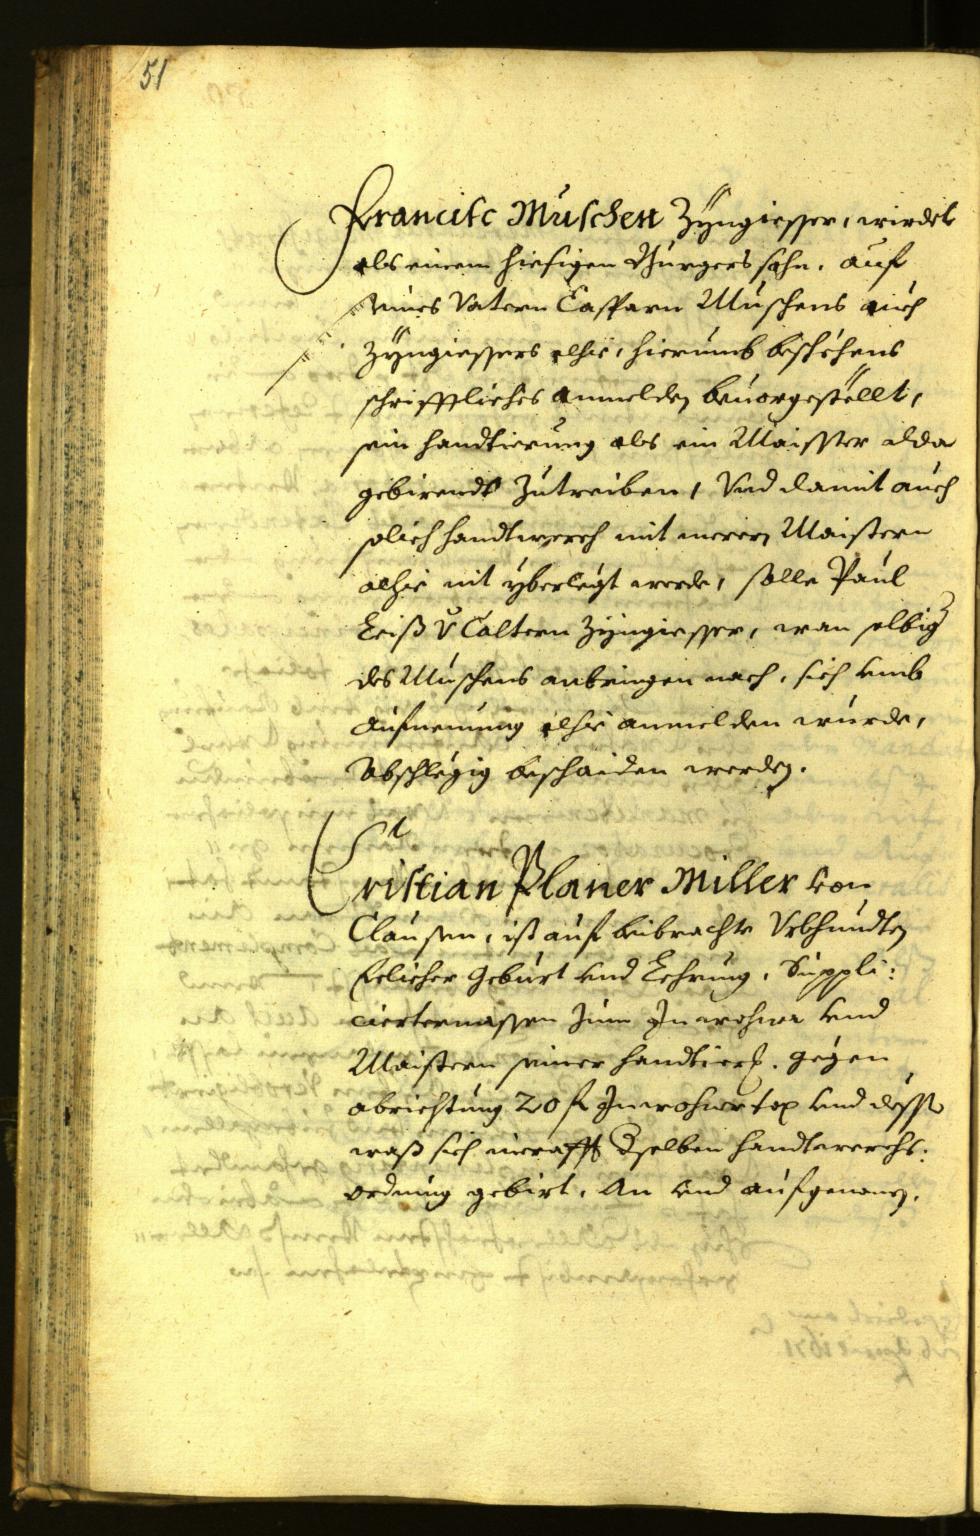 51
Francisc Muschen Zÿngiesser, wirdet
als einem hiesigen Burgers sohn, auf
seines Vatern Casparn Muschens auch
Zÿngiessers alhie, hierumb beschehens
schrifftliches anmelden beuorgestëllt,
sein handtierung als ein Maisster alda
gebirendt Zutreiben, Vnd damit auch
solich handtwerch mit merern Maistern
alhie nit yberlegt werde, solle Paul
Zeiß v Caltern Zÿngiesser, wan selbig
des Muschens anbringen nach, sich vmb
aufnemung alhie anmelden wurde,
Abschlegig beschaiden werden.
Cristian Planer Miller von
Clausen, ist auf beibrachte Vrkhundten
Eelicher Geburt vnd Lehrung, Supppli:
ciertermassen zum Inwohner vnd
Maistern seiner handtier, gegen
abrichtung 20 f Inwohner tax vnd dessen
waß sich in craft dselben handtwerchs:
ordnung gebirt, An vnd aufgenomen.